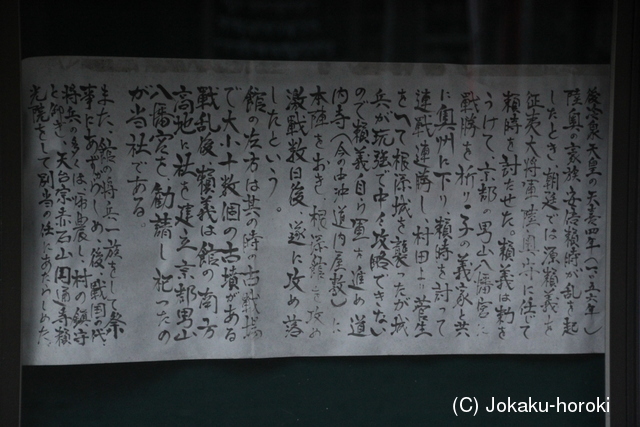 後冷泉天皇の天喜四年(一〇五六年)
陸奥の豪族安倍頼時が乱を起
したとき、朝廷では源頼義を
征夷大将軍陸奥守に任じて
頼時を討たせた。頼義は勅を
うけて京都の男山八幡宮に
戦勝を祈り子の義家と共
に奥州に下り頼時を討って
連戦連勝し、村田より菅生
をへて根添城を襲ったが城
兵が頑強で中々攻略できない
ので頼義自ら軍を進め道
内寺(今の中沖道内屋敷)に
本陣をおき、根添館を攻め
激戦数日後、遂に攻め落
したという。
館の左方は其の時の古戦場
で大小十数個の古墳がある
戦乱後頼義は館の南方
高地に社を建立、京都男山
八幡宮を勧請し祀ったの
が当社である
また、館の将兵一族をして祭
事にあたらしめ、後、戦国の代
将兵の多くは帰農し、村の鎮守
と仰ぎ、天台宗赤石山円通寺頼
光院をして別当の法にあたらしめた。
(C) Jokaku-horoki